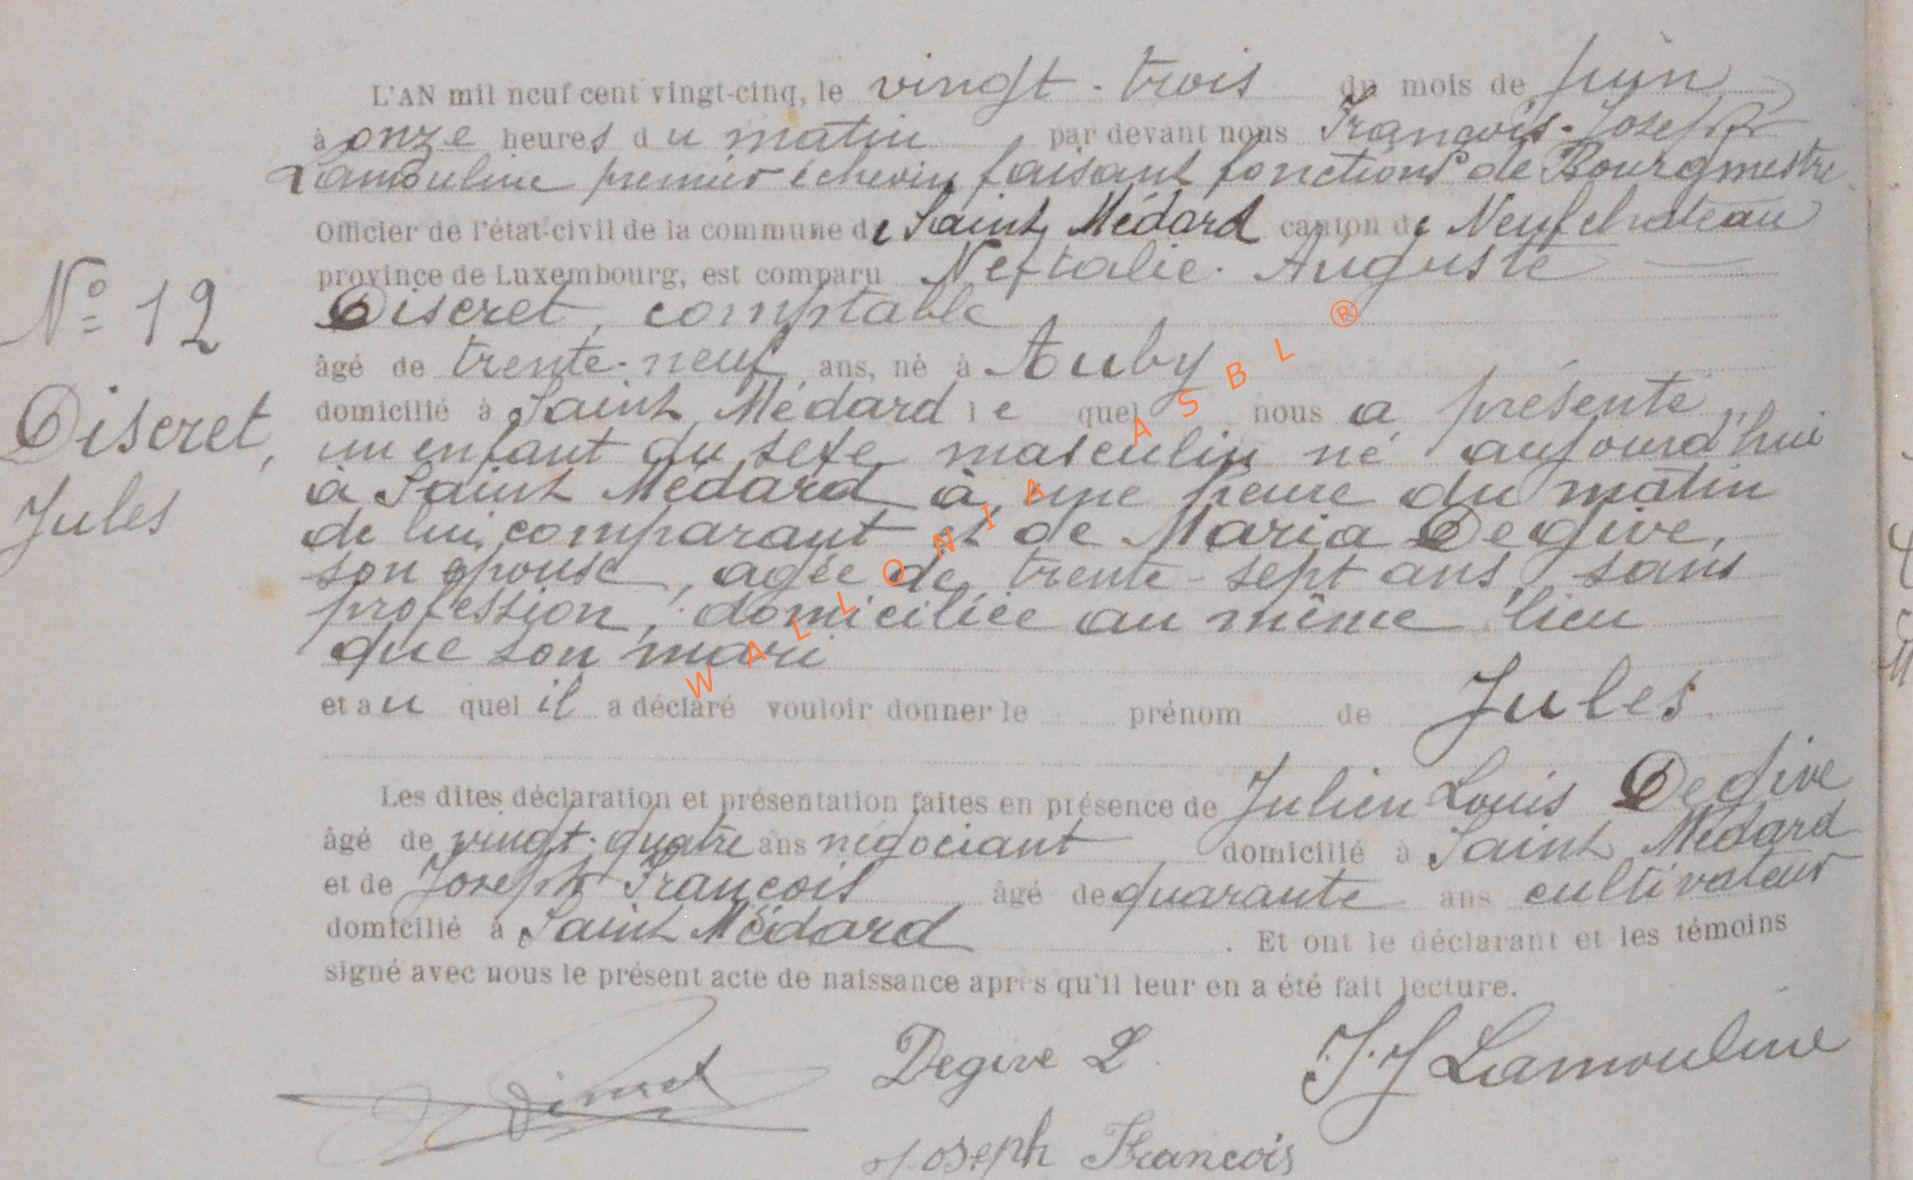 L'AN mil neuf cent vingt-cinq, le vingt-trois du mois de Juin
à onze heures du matin par devant nous François-Joseph
Lamouline premier échevin faisant fonctions de Bourgmestre
Officier de l'état-civil de la commune de Saint Médard canton de Neufchateau
province de Luxembourg, est comparu Neftalie-Auguste
Discret, comptable
âgé de trente-neuf ans, né à Auby
domicilié à Saint Médard lequel nous a présenté
un enfant du sexe masculin né aujourd'hui
à Saint Médard à une heure du matin
de lui comparant et de Maria Degive,
son épouse, agée de trente-sept ans, sans
profession, domiciliée au même lieu
que son mari
et auquel il a déclaré vouloir donner le prénom de Jules
Les dites déclaration et présentation faites en présence de Julien Louis Degive
âgé de vingt-quatre ans négociant domicilié à Saint Médard
et de Joseph François âgé de quarante ans cultivateur
domicilié à Saint Médard. Et ont le déclarant et les témoins
signé avec nous le présent acte de naissance après qu'il leur en a été fait lecture.
N° 12
Discret,
Jules
Discret
Degive L
J. J Lamouline
Joseph François
WALLONIA ASBL ®